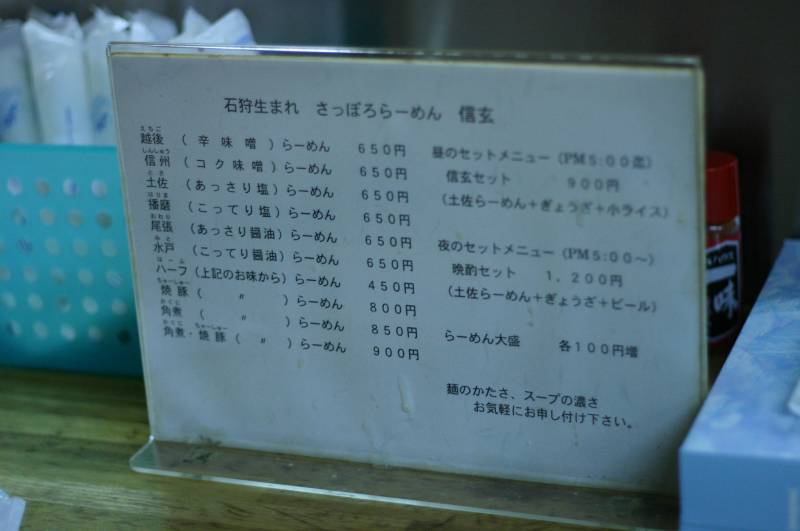 石狩生まれ さっぽろらーめん 信玄
えちご
越後 ( 辛味噌 )らーめん 650円
しんしゅう
信州 (コク味噌)らーめん 650円
とさ
土佐 (あっさり塩)らーめん 650円
はりま
播磨 (こってり塩)らーめん 650円
おわり
尾張 (あっさり醤油)らーめん 650円
みと
水戸 (こってり醤油)らーめん 650円
はーふ
ハーフ(上記のお味から)らーめん 450円
ちゃーしゅー
焼豚 ( 〃 )らーめん 800円
かくに
角煮 ( 〃 )らーめん 850円
かくに ちゃーしゅー
角煮・焼豚 ( 〃 )らーめん 900円
昼のセットメニュー(PM5:00迄)
信玄セット 900円
(土佐らーめん+ぎょうざ+小ライス)
夜のセットメニュー(PM5:00~)
晩酌セット 1,200円
(土佐らーめん+ぎょうざ+ビール)
らーめん大盛 各100円増
麺のかたさ、スープの濃さ
お気軽にお申し付け下さい。
味